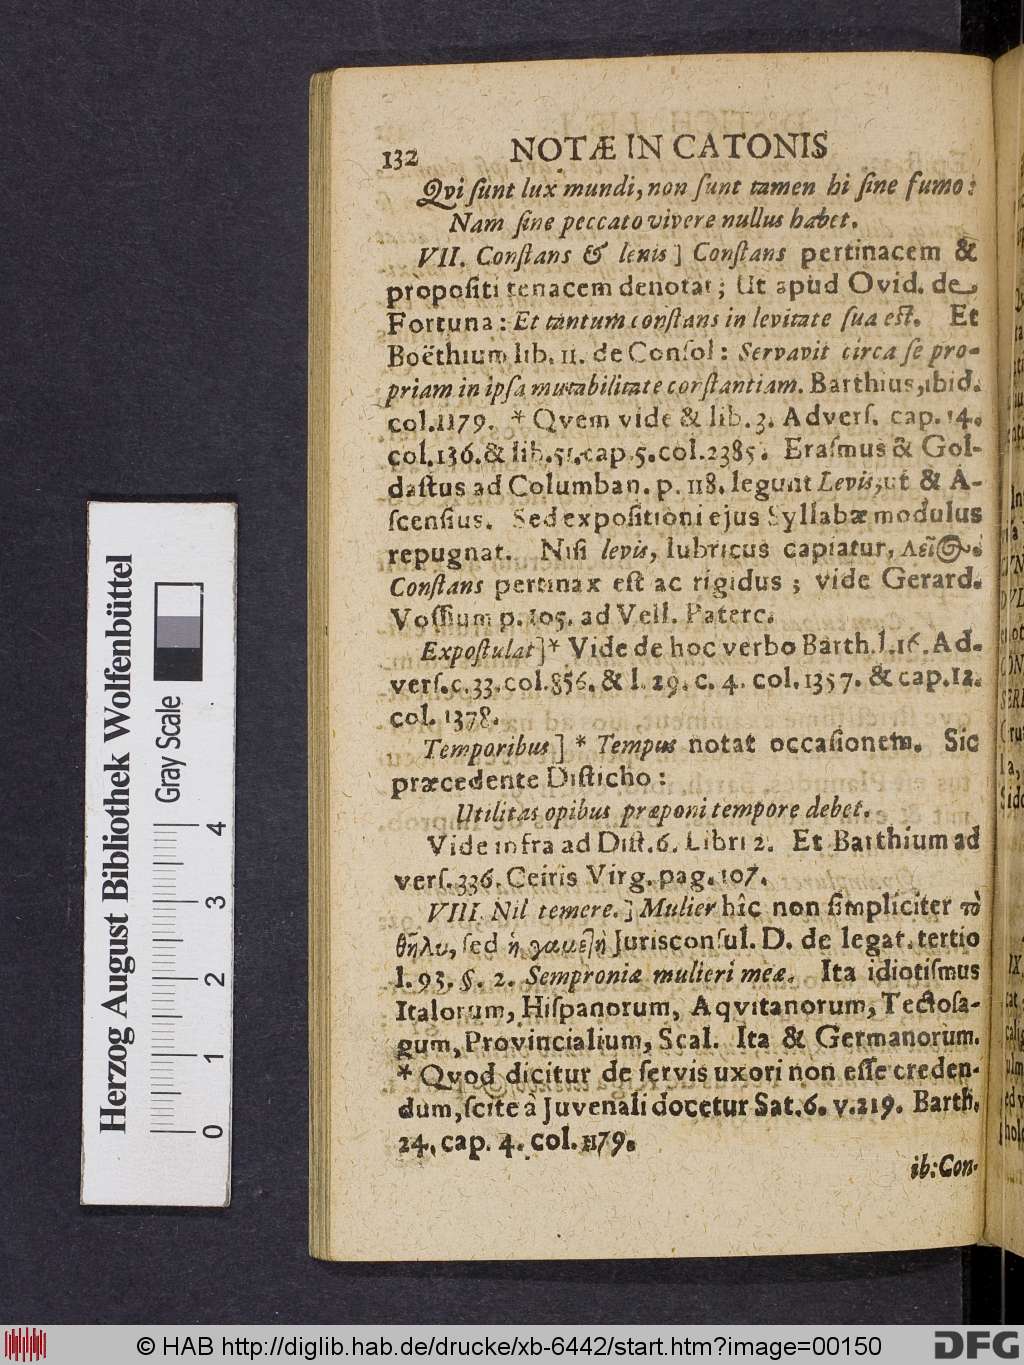 132 NOTÆ IN CATONIS
Qvi ſunt lux mundi, non ſunt tamen hi ſine fumo:
Nam ſine peccato vivere nullus habet.
VII. Conſtans & lenis] Conſtans pertinacem &
propoſiti tenacem denotat; Ut apud Ovid. de
Fortuna: Et tantum conſtans in levitate ſua eſt. Et
Boëthium lib. 11. de Conſol: Servavit circa ſe pro-
priam in ipſa mutabilitate conſtantiam. Barthius, ibid.
col. 1179. * Qvem vide & lib. 3. Adverſ. cap. 14.
col. 136. & lib. 51. cap. 5. col. 2385. Eraſmus & Gol-
daſtus ad Columban. p. 118. legunt Levis, ut & A-
ſcenſius. Sed expoſitioni ejus Syllabæ modulus
repugnat. Niſi levis, lubricus capiatur, λεῖος.
Conſtans pertinax eſt ac rigidus; vide Gerard.
Voſſium p. 105. ad Vell. Paterc.
Expoſtulat]* Vide de hoc verbo Barth. l. 16. Ad-
verſ. c. 33. col. 856. & l. 29. c. 4. col. 1357. & cap. 12.
col. 1378.
Temporibus] * Tempus notat occaſionem. Sic
præcedente Diſticho:
Utilitas opibus præponi tempore debet.
Vide infra ad Diſt. 6. Libri 2. Et Barthium ad
verſ. 336. Ceiris Virg. pag. 107.
VIII. Nil temere.] Mulier hîc non ſimpliciter τὸ
θῆλυ, ſed ἡ γαμετὴ Jurisconſul. D. de legat. tertio
l. 93. §. 2. Semproniæ mulieri meæ. Ita idiotiſmus
Italorum, Hiſpanorum, Aqvitanorum, Tectoſa-
gum, Provincialium, Scal. Ita & Germanorum.
* Qvod dicitur de ſervis uxori non eſſe creden-
dum, ſcite à Juvenali docetur Sat. 6. v. 219. Barth.
24. cap. 4. col. 1179.
ib: Con-
Herzog August Bibliothek Wolfenbüttel
Gray Scale
0 1 2 3 4
© HAB http://diglib.hab.de/drucke/xb-6442/start.htm?image=00150
DFG